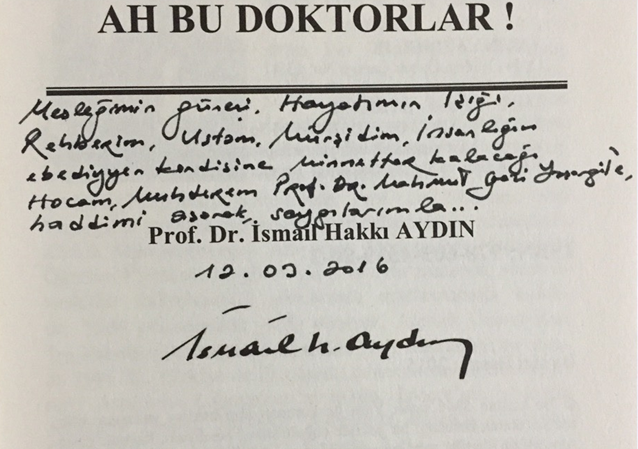 AH BU DOKTORLAR !
Mesleğimin güneşi, Hayatımın Işığı,
Rehberim, Ustam, Mürşidim, İnsanlığın
ebediyyen kendisine minnettar kalacağı
Hocam, Muhterem Prof. Dr. Mahmut Gazi Yaşargil'e,
haddimi aşarak, saygılarımla...
Prof. Dr. İsmail Hakkı AYDIN
12.03.2016
İsmail H. Aydın